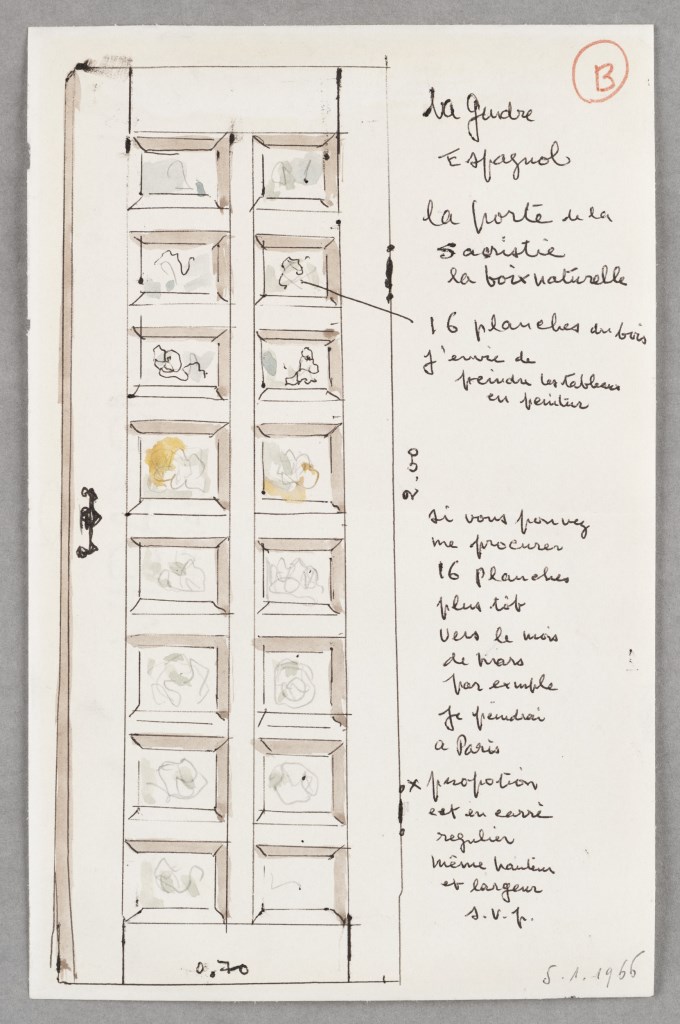 B
la Gudre
Espagnol
la porte de la
Sacristie
la boix naturelle
16 planches du bois
J'envie de
peindre les tableaux
en peintur
2,50
si vous pouvez
me procurer
16 planches
plus tôt
vers le mois
de Mars
par exemple
je peindrai
a Paris
x propotion
est en carré
regulier
même hauteur
et largeur
s.v.p.
0,70
5.1.1966